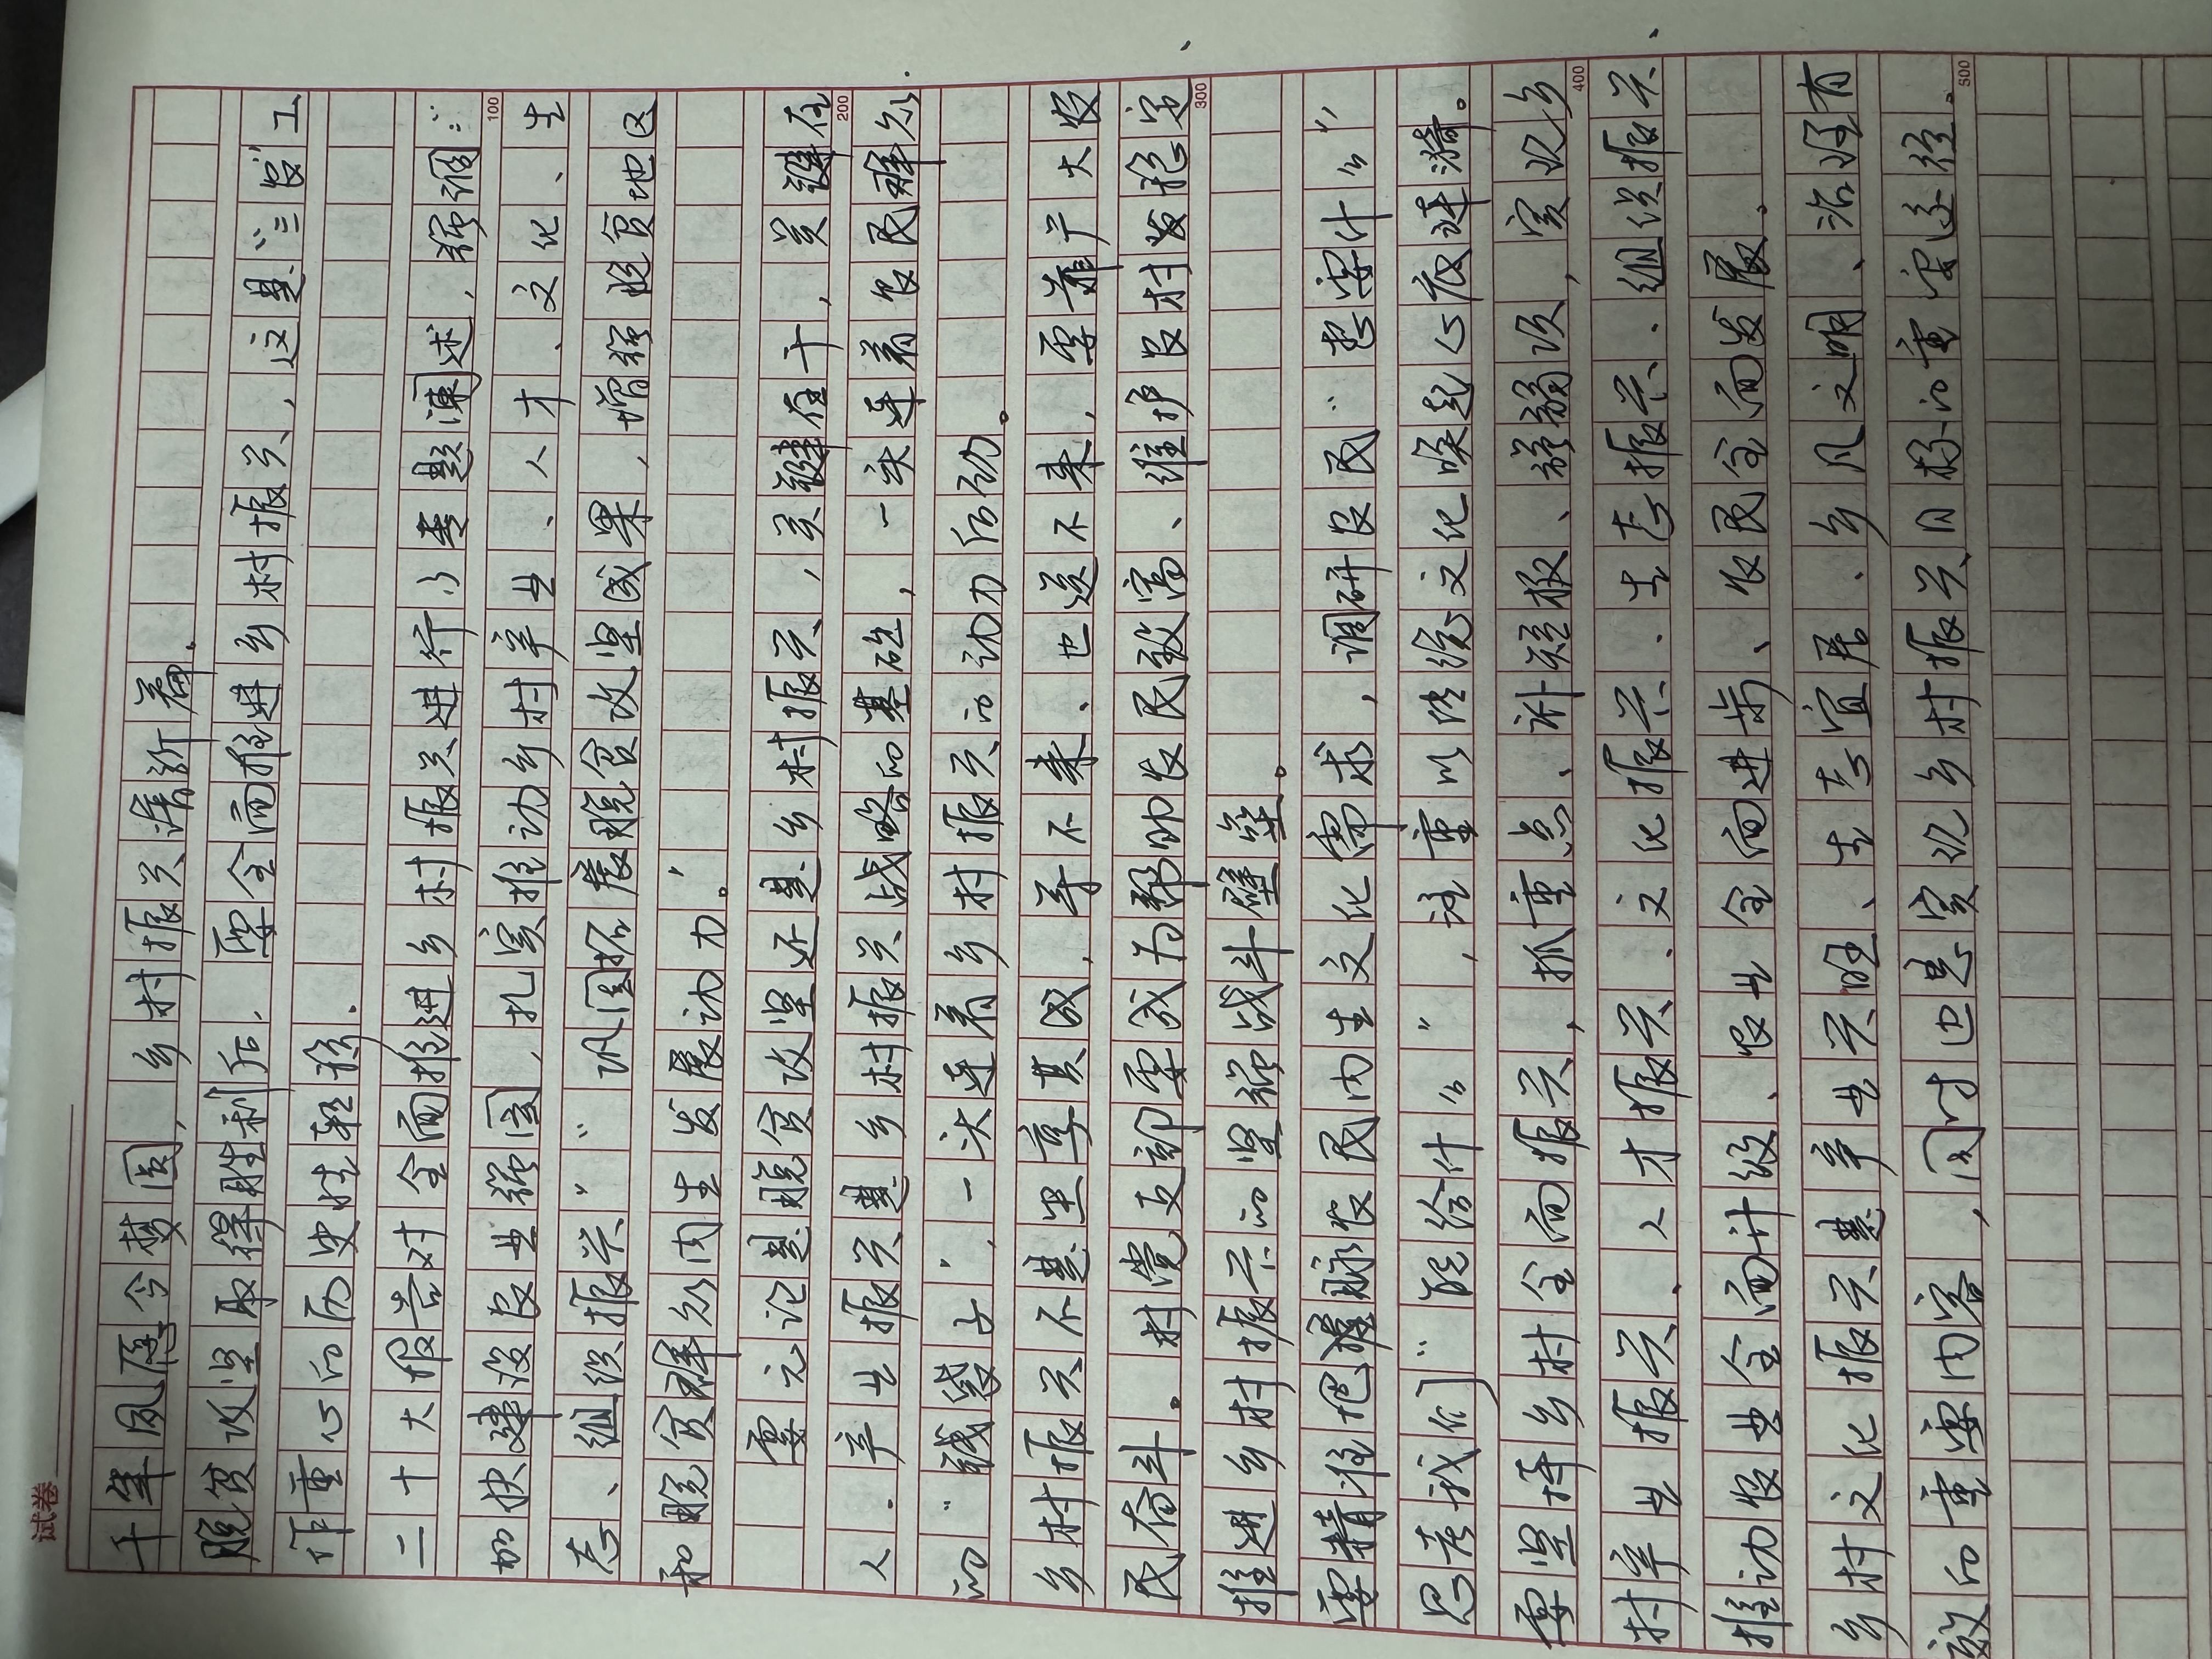 试卷
千年夙愿今梦圆，乡村振兴谱新篇。
脱贫攻坚取得胜利后，要全面推进乡村振兴，这是“三农”工
作重心的历史性转移。
二十大报告对全面推进乡村振兴进行了专题阐述，强调：“
100
加快建设农业强国，扎实推动乡村产业、人才、文化、生
态、组织振兴”“巩固拓展脱贫攻坚成果，增强脱贫地区
和脱贫群众内生发展动力。”
要无论是脱贫攻坚还是乡村振兴，关键在干，关键在
200
人。产业振兴是乡村振兴战略的基础，一头连着农民群众
的“钱袋子”，一头连着乡村振兴的动力后劲。
乡村振兴不是坐享其成，等不来、也送不来，要靠广大农
民奋斗。村党支部要成为帮助农民致富、维护农村发稳定、
300
推进乡村振兴的坚强战斗壁垒。
要精准把握脉农民内生文化需求，调研农民“想要什么”
思考我们“能给什么”，注重以传统文化唤起心底涟漪。
要坚持乡村全面振兴，抓重点、补短板、强弱项，实现乡
400
村产业振兴、人才振兴、文化振兴、生态振兴、组织振兴、
推动农业全面升级、农业全面进步、农民全面发展。
乡村文化振兴是产业兴旺、生态宜居、乡风文明、治理有
效的重要内容，同时也是实现乡村振兴目标的重要途径。
500